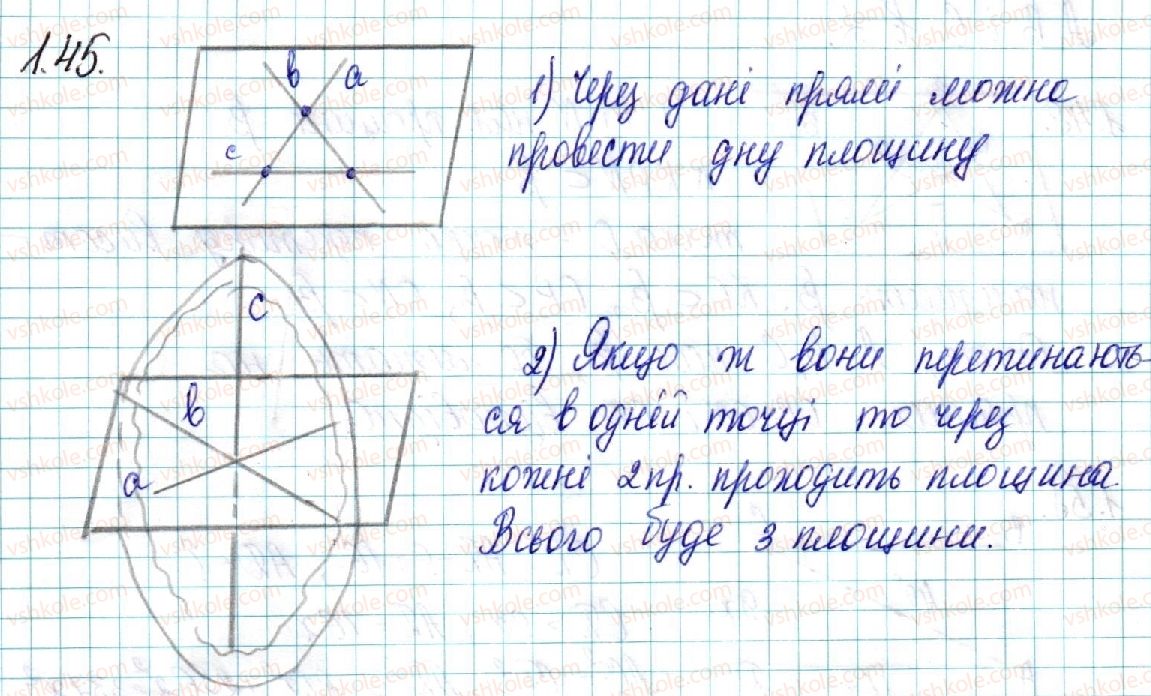 1.45.
в а
с
1) Через дані прямі можна
провести дну площину
с
в
а
2) Якщо ж вони перетинають-
ся в одній точці то через
кожні 2 пр. проходить площина.
Всього буде 3 площини.